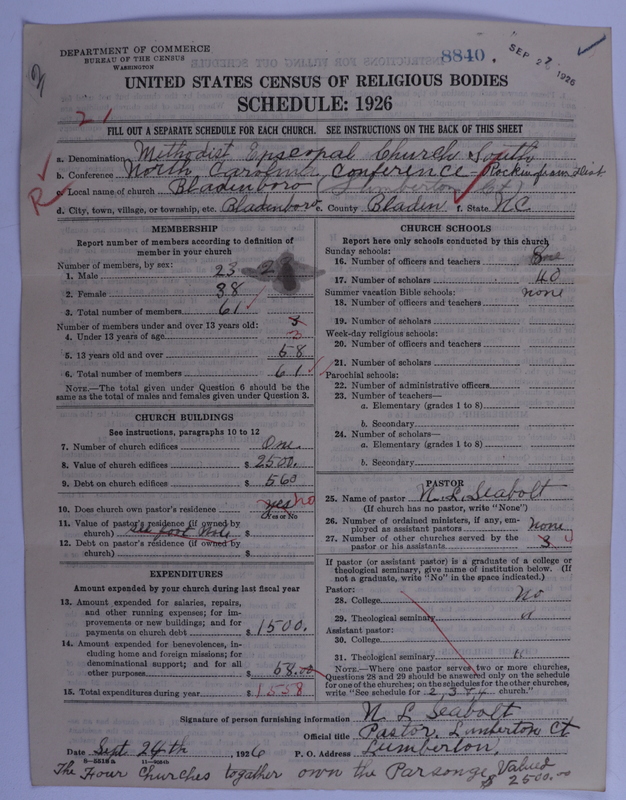 DEPARTMENT OF COMMERCE
BUREAU OF THE CENSUS
WASHINGTON
8840.
SEP 27 1926
UNITED STATES CENSUS OF RELIGIOUS BODIES
SCHEDULE: 1926
21
FILL OUT A SEPARATE SCHEDULE FOR EACH CHURCH. SEE INSTRUCTIONS ON THE BACK OF THIS SHEET
a. Denomination Methodist Episcopal Church South
b. Conference North Carolina Conference - Rockingham Dist
R
c. Local name of church Bladenboro (Lumberton Ct)
d. City, town, village, or township, etc. Bladenboro e. County Bladen f. State N.C.
MEMBERSHIP
Report number of members according to definition of member in your church
Number of members, by sex:
1. Male 23
2. Female 38
3. Total number of members 61
Number of members under and over 13 years old:
4. Under 13 years of age 3
5. 13 years old and over 58
6. Total number of members 61
NOTE.—The total given under Question 6 should be the same as the total of males and females given under Question 3.
CHURCH BUILDINGS
See instructions, paragraphs 10 to 12
7. Number of church edifices One
8. Value of church edifices $ 2500.
9. Debt on church edifices $ 560
10. Does church own pastor's residence yes no
(Yes or No)
11. Value of pastor's residence (if owned by church) see foot note $
12. Debt on pastor's residence (if owned by church) $
EXPENDITURES
Amount expended by your church during last fiscal year
13. Amount expended for salaries, repairs, and other running expenses; for improvements or new buildings; and for payments on church debt $ 1500.
14. Amount expended for benevolences, including home and foreign missions; for denominational support; and for all other purposes $ 58.00
15. Total expenditures during year $ 1558
CHURCH SCHOOLS
Report here only schools conducted by this church
Sunday schools:
16. Number of officers and teachers
17. Number of scholars 40
Summer vacation Bible schools: none
18. Number of officers and teachers
19. Number of scholars
Week-day religious schools:
20. Number of officers and teachers
21. Number of scholars
Parochial schools:
22. Number of administrative officers
23. Number of teachers—
a. Elementary (grades 1 to 8)
b. Secondary
24. Number of scholars—
a. Elementary (grades 1 to 8)
b. Secondary
PASTOR
25. Name of pastor N. L. Seabolt
(If church has no pastor, write "None")
26. Number of ordained ministers, if any, employed as assistant pastors none
27. Number of other churches served by the pastor or his assistants 3
If pastor (or assistant pastor) is a graduate of a college or theological seminary, give name of institution below. (If not a graduate, write "No" in the space indicated.)
Pastor:
28. College No
29. Theological seminary "
Assistant pastor:
30. College
31. Theological seminary "
NOTE.—Where one pastor serves two or more churches, Questions 28 and 29 should be answered only on the schedule for one of the churches; on the schedules for the other churches, write "See schedule for 2, 3 & 4 church."
Signature of person furnishing information N. L. Seabolt
Official title Pastor, Lumberton Ct
Date Sept. 24th, 1926 P. O. Address Lumberton,
The Four Churches together own the Parsonge, Valued $2500.00